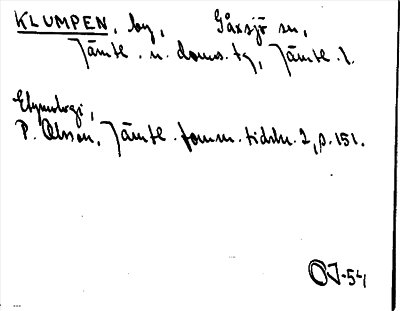 KLUMPEN, by, Gåxsjö sn,
Jämtl. n. doms. tg, Jämtl. l.
Etymologi,
P. Olsson, Jämtl. fornm. tidskr. 2, p. 151.
OJ-54